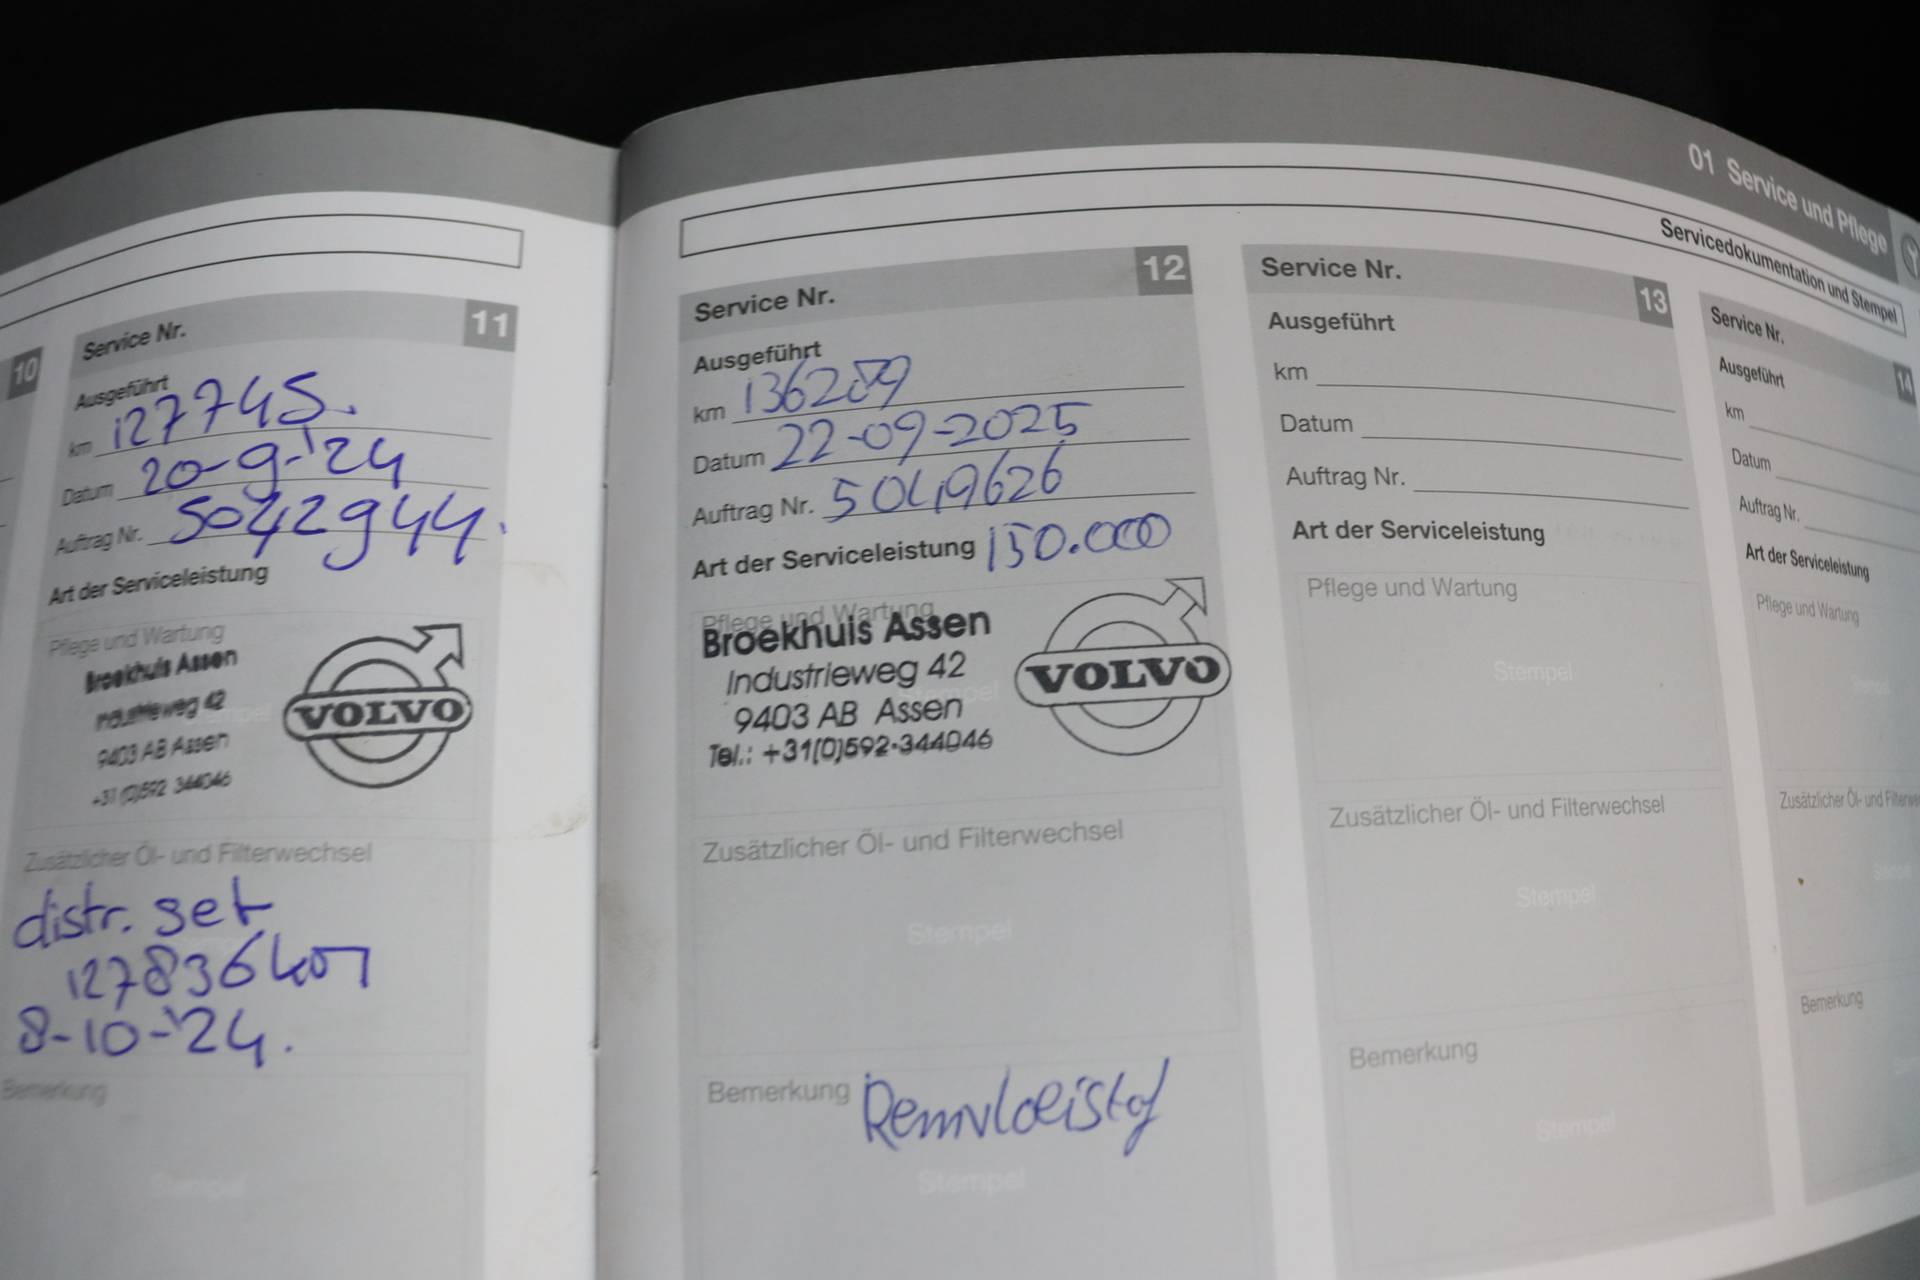 01 Service und Pflege
Servicedokumentation und Stempel
10
Service Nr. 11
Ausgeführt
km 127745.
Datum 20-9-'24
Auftrag Nr. 5042944.
Art der Serviceleistung
Pflege und Wartung
Broekhuis Assen
Industrieweg 42
9403 AB Assen
+31 (0)592 344046
VOLVO
Zusätzlicher Öl- und Filterwechsel
distr. set
127836 km
8-10-'24.
Bemerkung
Stempel
Service Nr. 12
Ausgeführt
km 136289
Datum 22-09-2025
Auftrag Nr. 5049626
Art der Serviceleistung 150.000
Pflege und Wartung
Stempel
Broekhuis Assen
Industrieweg 42
9403 AB Assen
Tel.: +31(0)592-344046
VOLVO
Zusätzlicher Öl- und Filterwechsel
Stempel
Bemerkung Remvloeistof
Stempel
Service Nr. 13
Ausgeführt
km
Datum
Auftrag Nr.
Art der Serviceleistung
Pflege und Wartung
Stempel
Zusätzlicher Öl- und Filterwechsel
Stempel
Bemerkung
Stempel
Service Nr. 14
Ausgeführt
km
Datum
Auftrag Nr.
Art der Serviceleistung
Pflege und Wartung
Stempel
Zusätzlicher Öl- und Filterwe
Stempel
Bemerkung